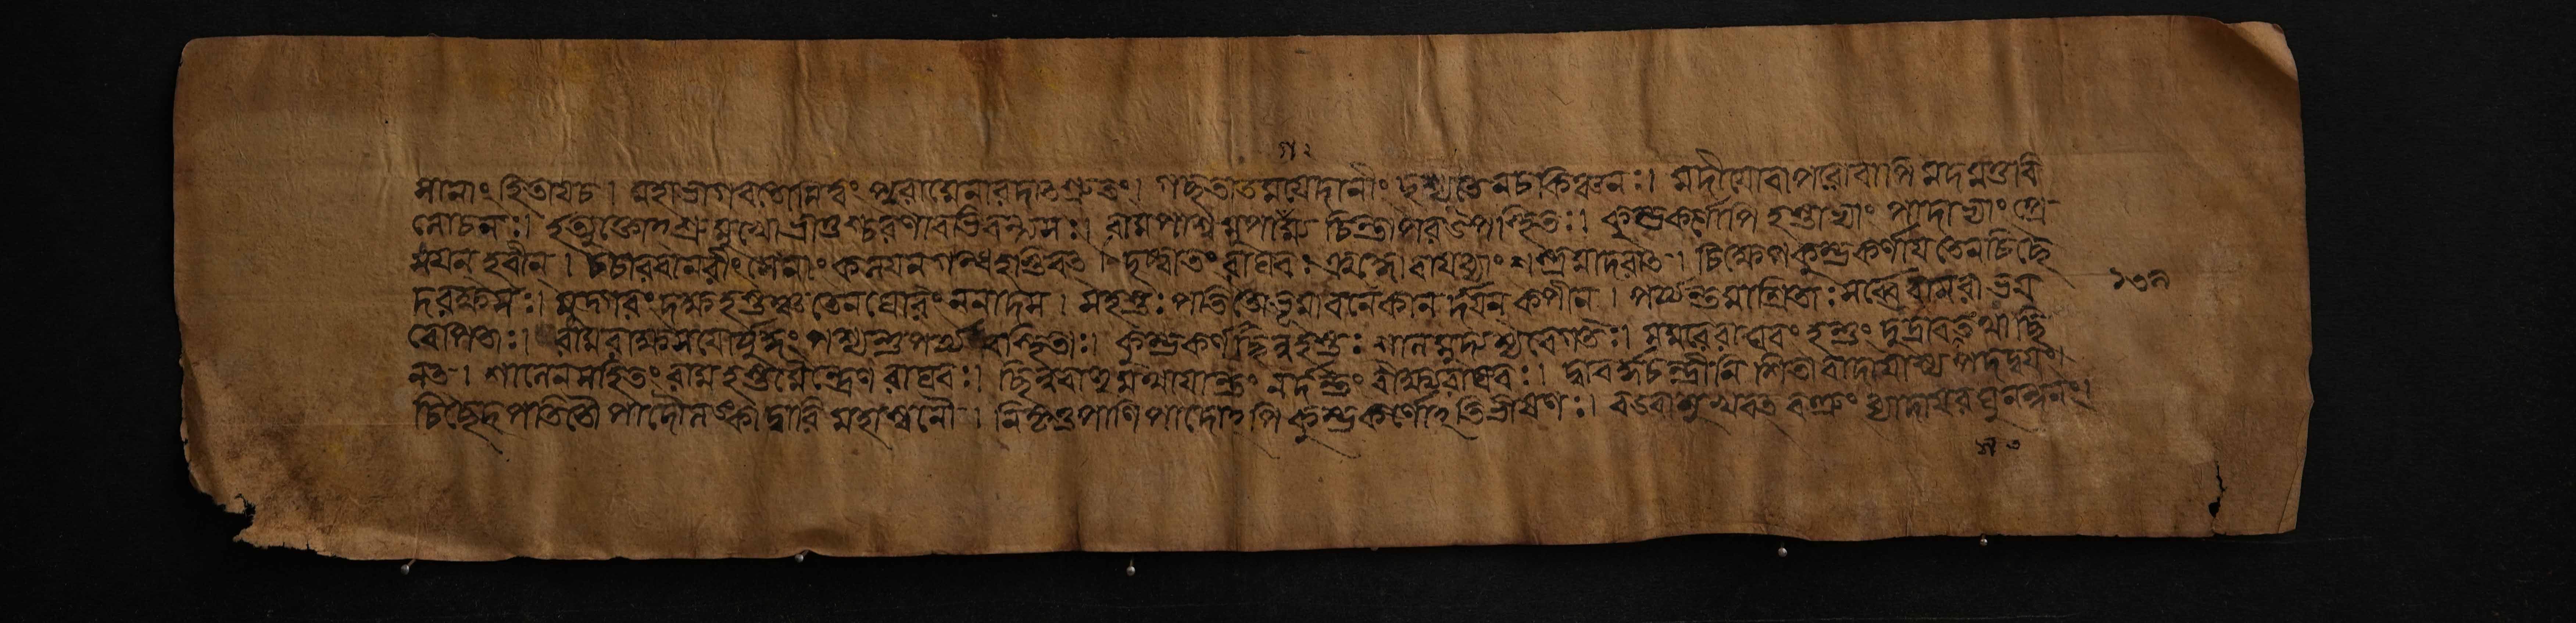 সানাং হিতায চ । মহাভাগবতোসি ত্বং পুরা মে নারদাত্ শ্রুতং । গচ্ছ তাত মমেদানীং দৃশ্যতে ন চ কিঞ্চন: । মদীযো বা পরো বাপি মদমত্তবি
লোচন: । ইত্যুক্তোঽশ্রুমুখো ভ্রাতুশ্চরণাবভিবন্দ্য স: । রামপার্শ্বমুপাগম্য চিন্তাপর উপস্থিত: । কুম্ভকর্ণোপি হস্তাভ্যাং পাদাভ্যাং পে-
ষযন্ হরীন্ । চচার বানরীং সেনাং কালযন্ গন্ধহস্তিবত্ । দৃষ্ট্বা তং রাঘব: ক্রুদ্ধো বাযব্যং শস্ত্রমাদরাত্ । চিক্ষেপ কুম্ভকর্ণায তেন চিচ্ছে
দ রক্ষস: । মুদ্গরং দক্ষহস্তঞ্চ তেন ঘোরং ননাদ স । স হস্ত: পতিতো ভূমাবনেকানর্দযন্ কপীন্ । পর্য্যন্তমাশ্রিতা: সর্ব্বে বানরা ভয ১৩৭
বেপিতা: । রামরাক্ষসযোর্যুদ্ধং পশ্যন্ত পর্য্যবস্থিতা: । কুম্ভকর্ণশ্ছিন্নহস্ত: শালমুদ্যম্য বেগত: । সমরে রাঘবং হন্তুং দুদ্রাব তমথোচ্ছি
নত্ । শালেন সহিতং বামহস্তমৈন্দ্রেণ রাঘব: । ছিন্নবাহুমথাযান্তং নর্দন্তং বীক্ষ্য রাঘব: । দ্বাবর্দ্ধচন্দ্রৌ নিশিতাবাদাযাস্য পদদ্বযং ।
চিচ্ছেদ পতিতৌ পাদৌ লঙ্কাদ্বারি মহাস্বনৌ । নিকৃত্তপাণিপাদোঽপি কুম্ভকর্ণোঽতিভীষণ: । বডবামুখবদ্বক্ত্রং ব্যাদায রঘুনন্দনং ।